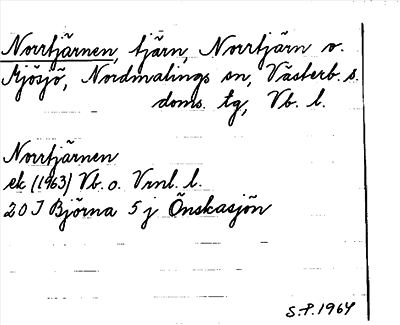 Norrtjärnen, tjärn, Norrtjärn o.
Mjösjö, Nordmalings sn, Västerb. s.
doms. tg, Vb. l.
Norrtjärnen
ek (1963) Vb. o. Vrnl. l.
20 I Björna 5 j Önskasjön
S.P. 1964